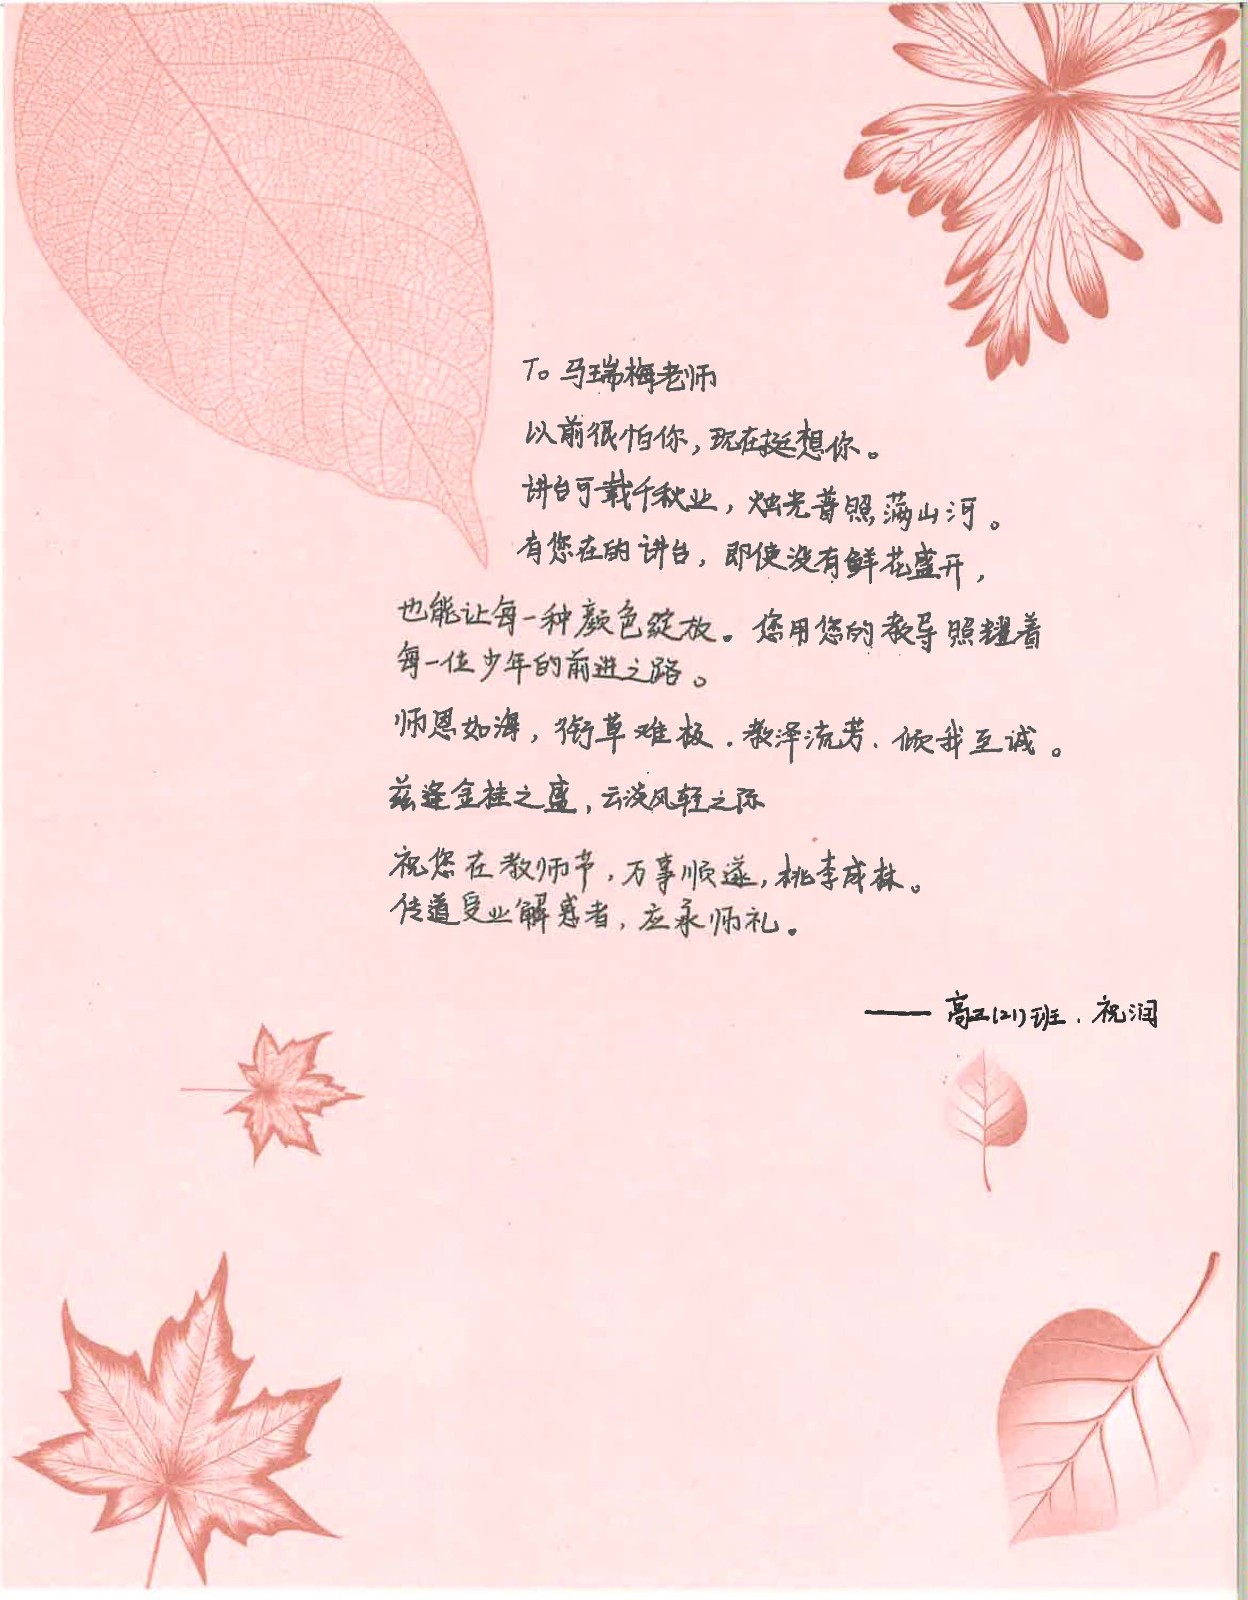 To 马瑞梅老师
以前很怕你，现在挺想你。
讲台可载千秋业，烛光普照满山河。
有您在的讲台，即使没有鲜花盛开，
也能让每一种颜色绽放。您用您的教导照耀着
每一位少年的前进之路。
师恩如海，衔草难报．教泽流芳．倾我至诚。
兹逢金桂之盛，云淡风轻之际
祝您在教师节，万事顺遂，桃李成林。
传道受业解惑者，应承师礼。
—— 高三(21)班．祝润